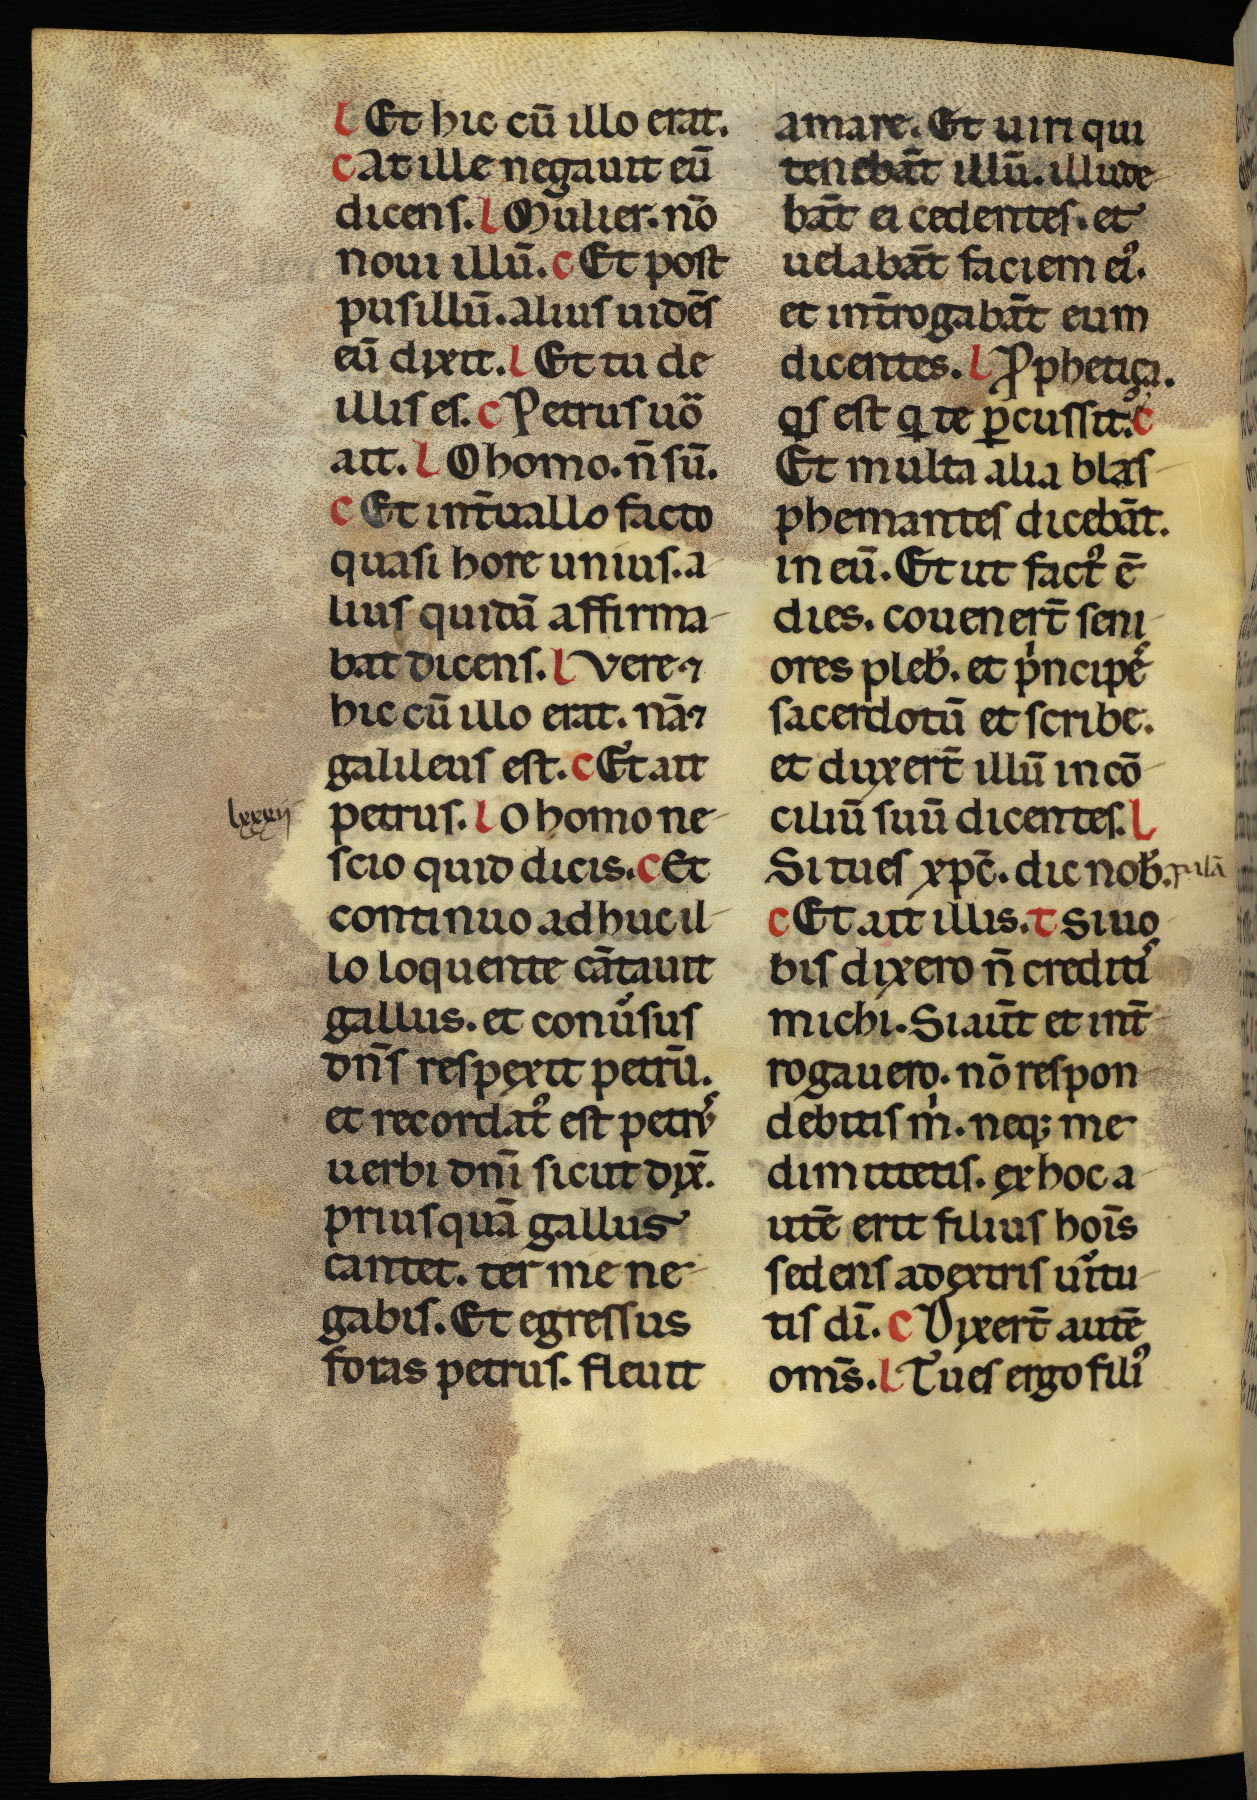 l Et hic cū illo erat.
c At ille negauit eū
dicens. l Mulier. nō
noui illū. c Et post
pusillū. alius uidēs
eū dixit. l Et tu de
illis es. c Petrus uo̅
ait. l O homo. n̄ sū.
c Et int̄uallo facto
quasi hore unius. a
lius quidā affirma
bat dicens. l Vere ⁊
hic cū illo erat. nā ⁊
galileus est. c Et ait
petrus. l O homo ne
scio quid dicis. c Et
continuo adhuc il
lo loquente cātauit
gallus. et conůsus
dn̄s respexit petrū.
et recordatꝰ est petrꝰ
uerbi dn̄i sicut dix̄.
priusquā gallus
cantet. ter me ne
gabis. Et egressus
foras petrus. fleuit
lxxxii
amare. Et uiri qui
tenebāt illū. illude
bāt ei cedentes. et
uelabāt faciem eiꝰ.
et int̄rogabāt eum
dicentes. l Ꝓphetiça.
qͥs est qͥ te ꝑcussit. c
Et multa alia blas
phemantes dicebāt.
in eū. Et ut factꝰ ē
dies. couenert̄ seni
ores pleb̄. et pͥncipeˢ
sacerdotū et scribe.
et duxert̄ illū in cō
ciliū suū dicentes. l
Si tu es xpc̄. dic nob̄.
c Et ait illis. t Si uo
bis dixero n̄ creditiˢ
michi. Si aūt et int̄
rogauero. nō respon
debitis mͥ. neqꝫ me
dimittetis. ex hoc a
utē erit filius hoīs
sedens adextris uͥrtu
tis dī. c Dixert̄ autē
om̄s. l Tu es ergo filiꝰ